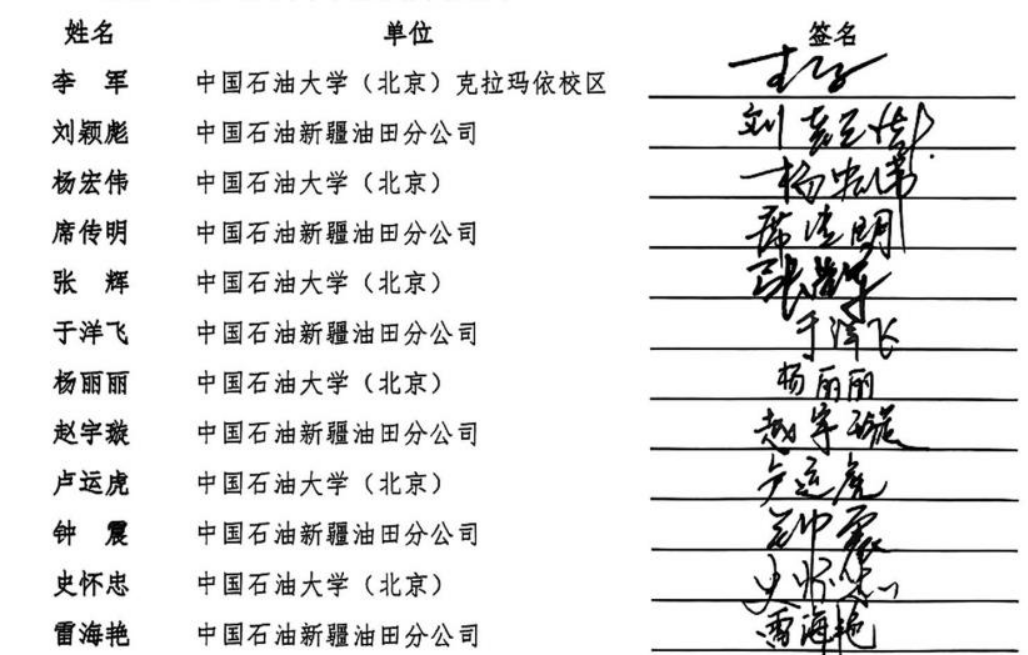 姓名 单位 签名
李 军 中国石油大学（北京）克拉玛依校区
刘颖彪 中国石油新疆油田分公司 刘颖彪
杨宏伟 中国石油大学（北京） 杨宏伟
席传明 中国石油新疆油田分公司 席传明
张 辉 中国石油大学（北京） 张辉
于洋飞 中国石油新疆油田分公司 于洋飞
杨丽丽 中国石油大学（北京） 杨丽丽
赵宇璇 中国石油新疆油田分公司 赵宇璇
卢运虎 中国石油大学（北京） 卢运虎
钟 震 中国石油新疆油田分公司 钟震
史怀忠 中国石油大学（北京） 史怀忠
雷海艳 中国石油新疆油田分公司 雷海艳